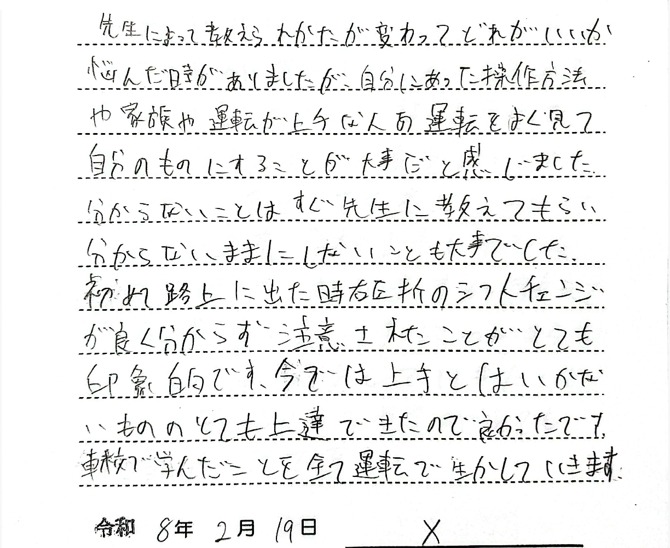 先生によって教えられかたが変わってどれがいいか
悩んだ時がありましたが、自分にあった操作方法
や家族や運転が上手な人の運転をよく見て
自分のものにすることが大事だと感じました。
分からないことはすぐ先生に教えてもらい
分からないままにしないことも大事でした。
初めて路上に出た時右左折のシフトチェンジ
が良く分からず注意されたことがとても
印象的です。今では上手とはいかな
いもののとても上達できたので良かったです。
車校で学んだことを全て運転で生かしていきます。
令和 8年 2月 19日 X